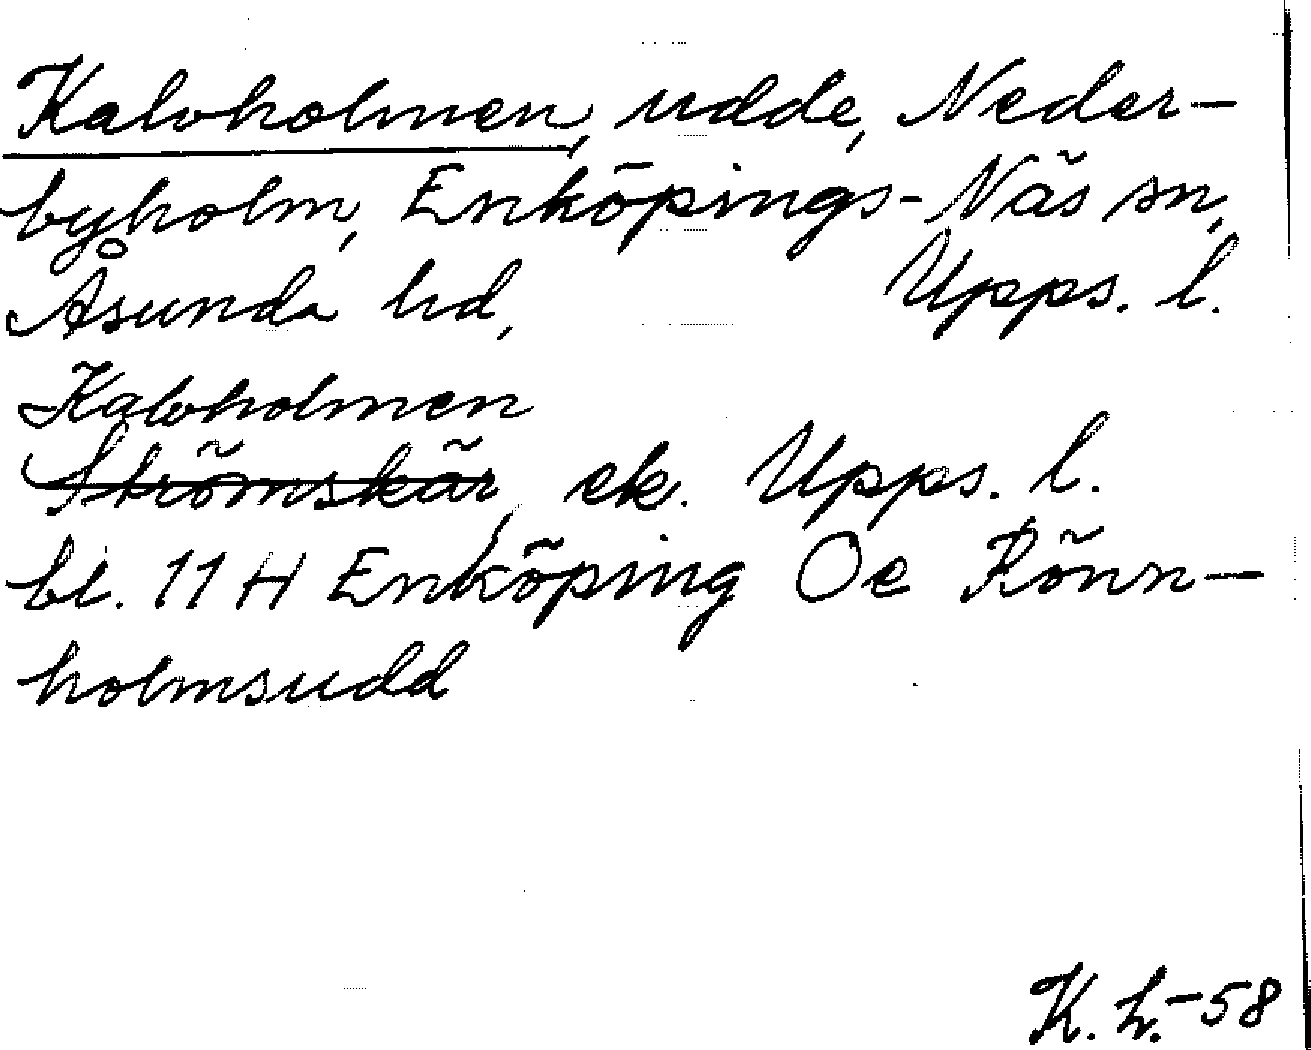 Kalvholmen, udde, Neder-
byholm, Enköpings-Näs sn,
Åsunda hd, Upps. l.
Kalvholmen
Strömskär, ek. Upps. l.
bl. 11 H Enköping Oe Rönn-
holmsudd
K. h. -58